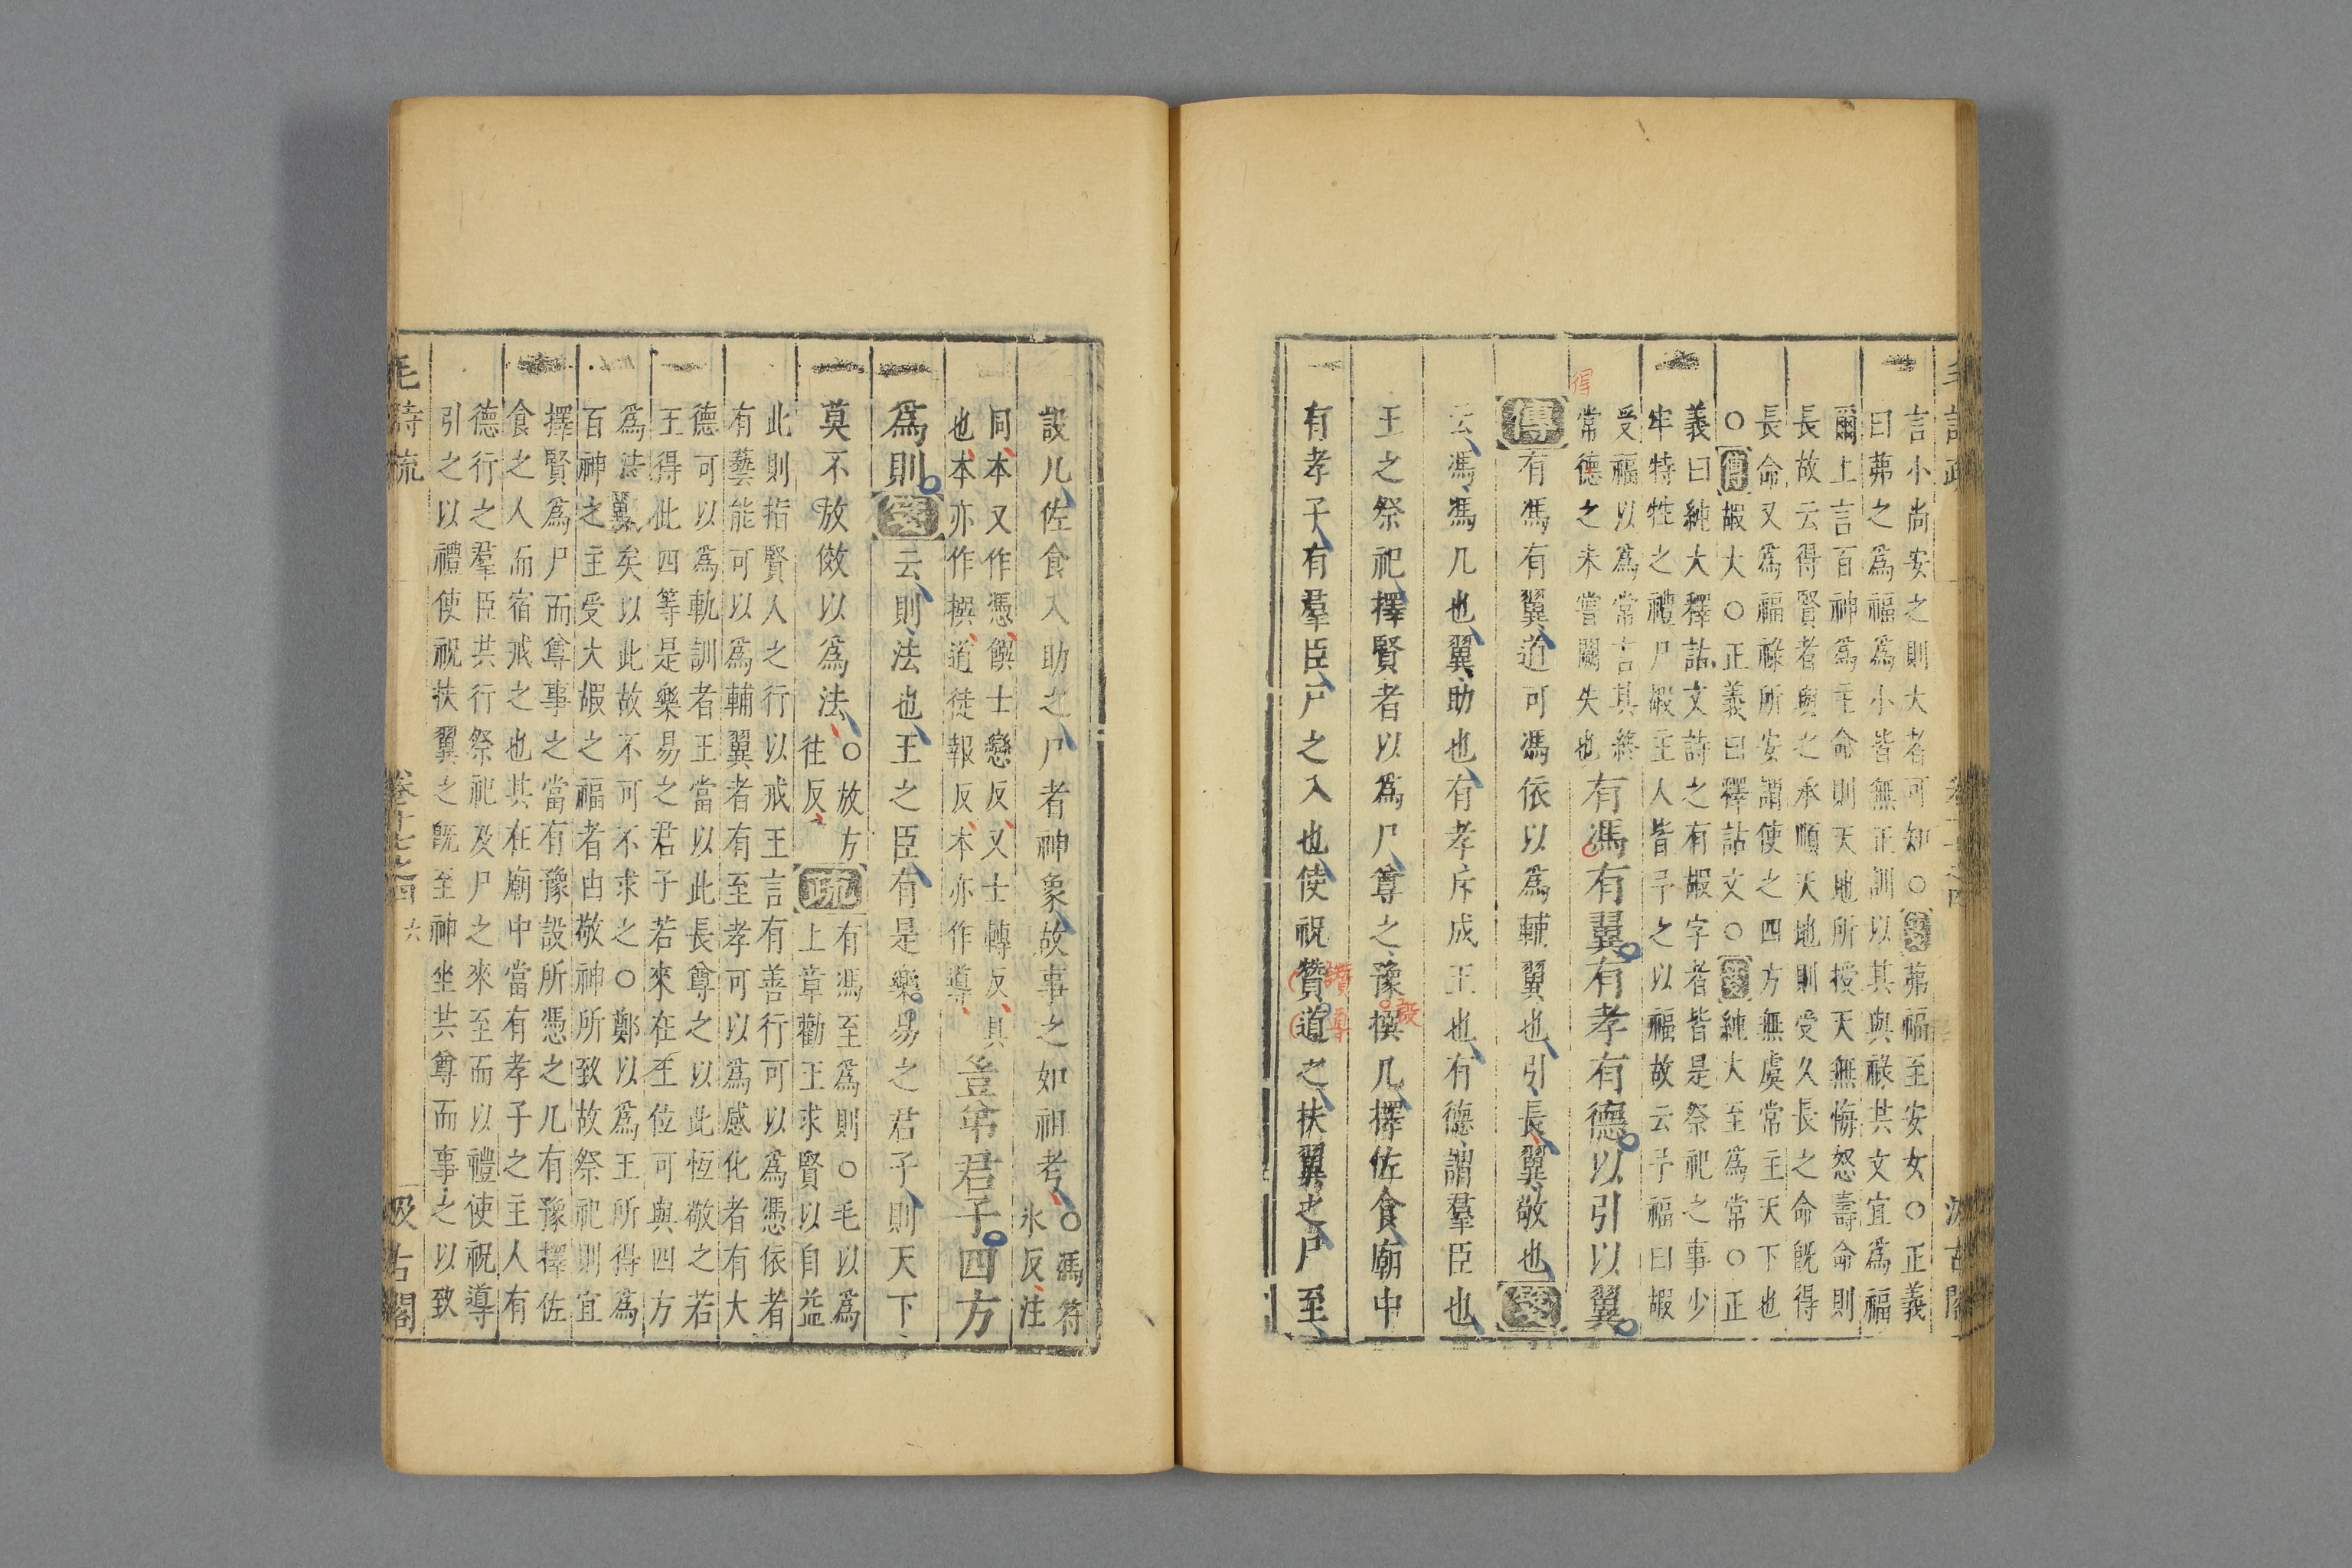 言小尚安之則大者可知○箋茀福至安女○正義
曰茀之為福為小皆無正訓以其與祿共文宜為福
爾上言百神為主命則天地所授天無悔怒壽命則
長故云得賢者與之承順天地則受久長之命旣得
長命又為福祿所安謂使之四方無虞常主天下也
○傳嘏大○正義曰釋詁文○箋純大至為常○正
義曰純大釋詁文詩之有嘏字者皆是祭祀之事少
牢特牲之禮尸嘏主人皆予之以福故云予福曰嘏
受福以為常言其終
常德之未嘗闕失也
得
有馮有翼有孝有德以引以翼
傳有馮有翼道可馮依以為輔翼也引長翼敬也箋
云馮馮几也翼助也有孝斥成王也有德謂羣臣也
王之祭祀擇賢者以為尸尊之豫撰几擇佐食廟中
有孝子有羣臣尸之入也使祝贊道之扶翼之尸至
設几佐食入助之尸者神象故事之如祖考○馮符
氷反注
同本又作憑饌士戀反又士轉反具
也本亦作撰道徒報反本亦作導
豈弟君子四方
為則箋云則法也王之臣有是樂易之君子則天下
莫不放傚以為法○放方
往反
疏有馮至為則○毛以為
上章勸王求賢以自益
此則指賢人之行以戒王言有善行可以為憑依者
有藝能可以為輔翼者有至孝可以為感化者有大
德可以為軌訓者王當以此長尊之以此恆敬之若
王得此四等是樂易之君子若來在至位可與四方
為法翼矣以此故不可不求之○鄭以為王所得為
百神之主受大嘏之福者由敬神所致故祭祀則宜
擇賢為尸而尊事之當有豫設所憑之几有豫擇佐
食之人而宿戒之也其在廟中當有孝子之主人有
德行之羣臣共行祭祀及尸之來至而以禮使祝導
引之以禮使祝扶翼之旣至神坐共尊而事之以致
毛詩疏 卷十七之四 六 汲古閣